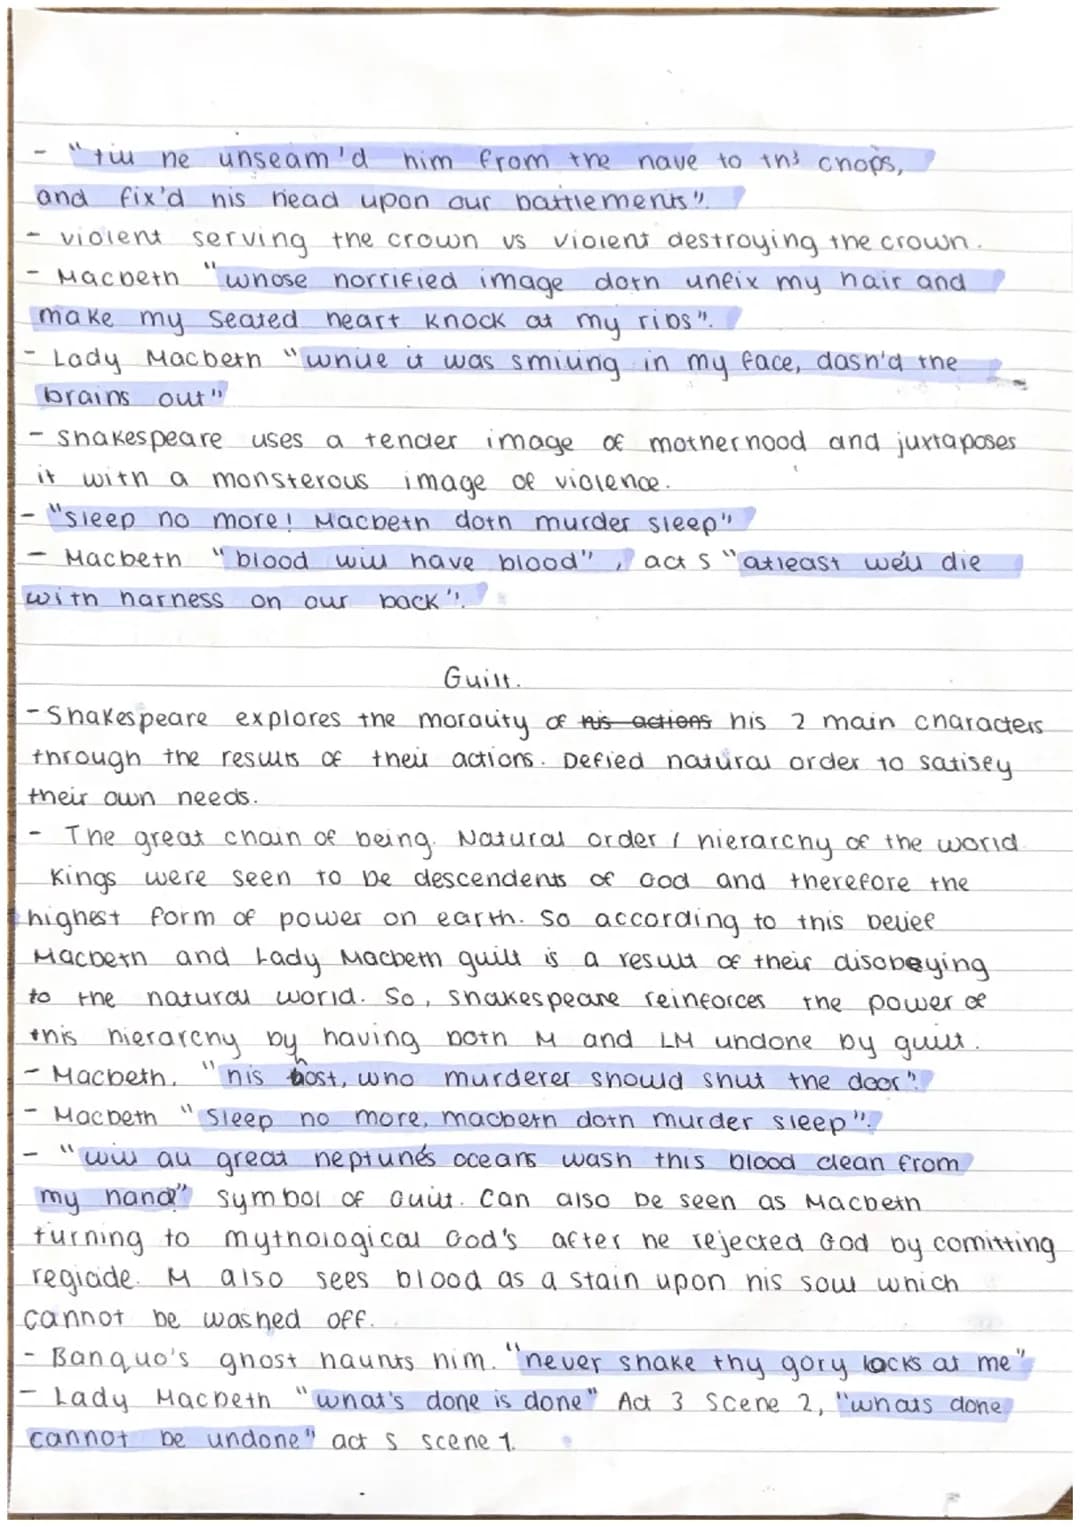 - "till he unseam'd him from the nave to th' chops,
and fix'd his head upon our battlements".
- violent serving the crown vs violent destroying the crown.
- Macbeth "whose horrified image doth unfix my hair and
make my seated heart knock at my ribs".
- Lady Macbeth "while it was smiling in my face, dash'd the
brains out"
- Shakespeare uses a tender image of motherhood and juxtaposes
it with a monsterous image of violence.
- "Sleep no more! Macbeth doth murder sleep"
- Macbeth "blood will have blood", act 5 "atleast we'll die
with harness on our back".
Guilt.
- Shakespeare explores the morality of his actions his 2 main characters
through the results of their actions. Defied natural order to satisfy
their own needs.
- The great chain of being. Natural order / hierarchy of the world
Kings were seen to be descendents of God and therefore the
highest form of power on earth. So according to this belief
Macbeth and Lady Macbeth guilt is a result of their disobeying
to the natural world. So, Shakespeare reinforces the power of
this hierarchy by having both M and LM undone by guilt.
- Macbeth. "his host, who murderer should shut the door".
- Macbeth "Sleep no more, macbeth doth murder sleep".
- "will all great neptune's oceans wash this blood clean from
my hand" symbol of Guilt. Can also be seen as Macbeth
turning to mythological God's after he rejected God by comitting
regicide. M also sees blood as a stain upon his soul which
cannot be washed off.
- Banquo's ghost haunts him. "never shake thy gory locks at me"
- Lady Macbeth "what's done is done" Act 3 Scene 2, "whats done
cannot be undone" act 5 scene 1.